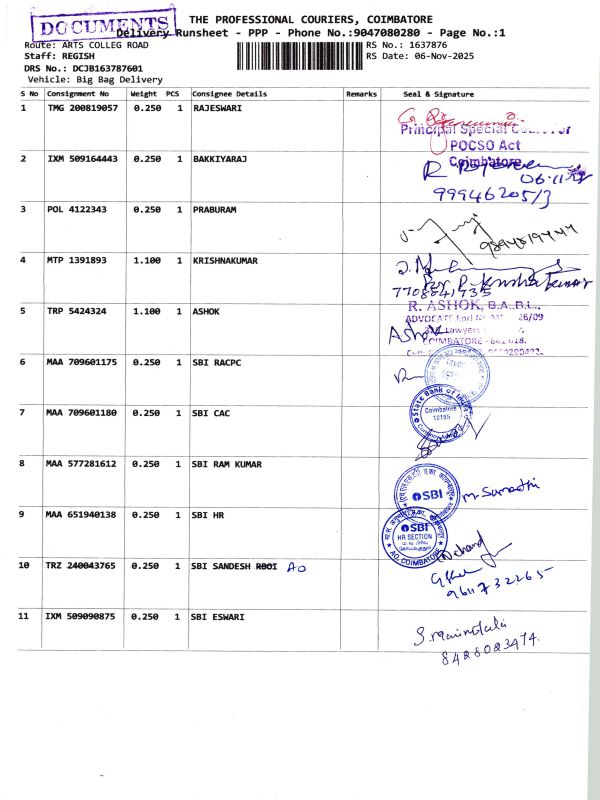 DOCUMENTS
THE PROFESSIONAL COURIERS, COIMBATORE
Delivery Runsheet - PPP - Phone No.:9047080280 - Page No.:1
Route: ARTS COLLEG ROAD
RS No.: 1637876
Staff: REGISH
RS Date: 06-Nov-2025
DRS No.: DCJB163787601
Vehicle: Big Bag Delivery
S No Consignment No Weight PCS Consignee Details Remarks Seal & Signature
1 TMG 200819057 0.250 1 RAJESWARI
Principal Special Court for
POCSO Act
Coimbatore
2 IXM 509164443 0.250 1 BAKKIYARAJ
06.11
9994620513
3 POL 4122343 0.250 1 PRABURAM
4 MTP 1391893 1.100 1 KRISHNAKUMAR
5 TRP 5424324 1.100 1 ASHOK
R. ASHOK, B.A.B.L.,
ADVOCATE 26/09
Ashok Lawyers
COIMBATORE - 641 018.
6 MAA 709601175 0.250 1 SBI RACPC
7 MAA 709601180 0.250 1 SBI CAC
State Bank of India
Coimbatore
8 MAA 577281612 0.250 1 SBI RAM KUMAR
SBI
9 MAA 651940138 0.250 1 SBI HR
SBI
HR SECTION
AO, COIMBATORE
10 TRZ 240043765 0.250 1 SBI SANDESH RBOI AO
9611732265
11 IXM 509090875 0.250 1 SBI ESWARI
8428023474.